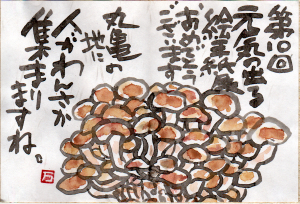 第10回
元気の出る
絵手紙展
おめでとう
ございます
丸亀の
地に
人がわんさか
集まり
ますね。